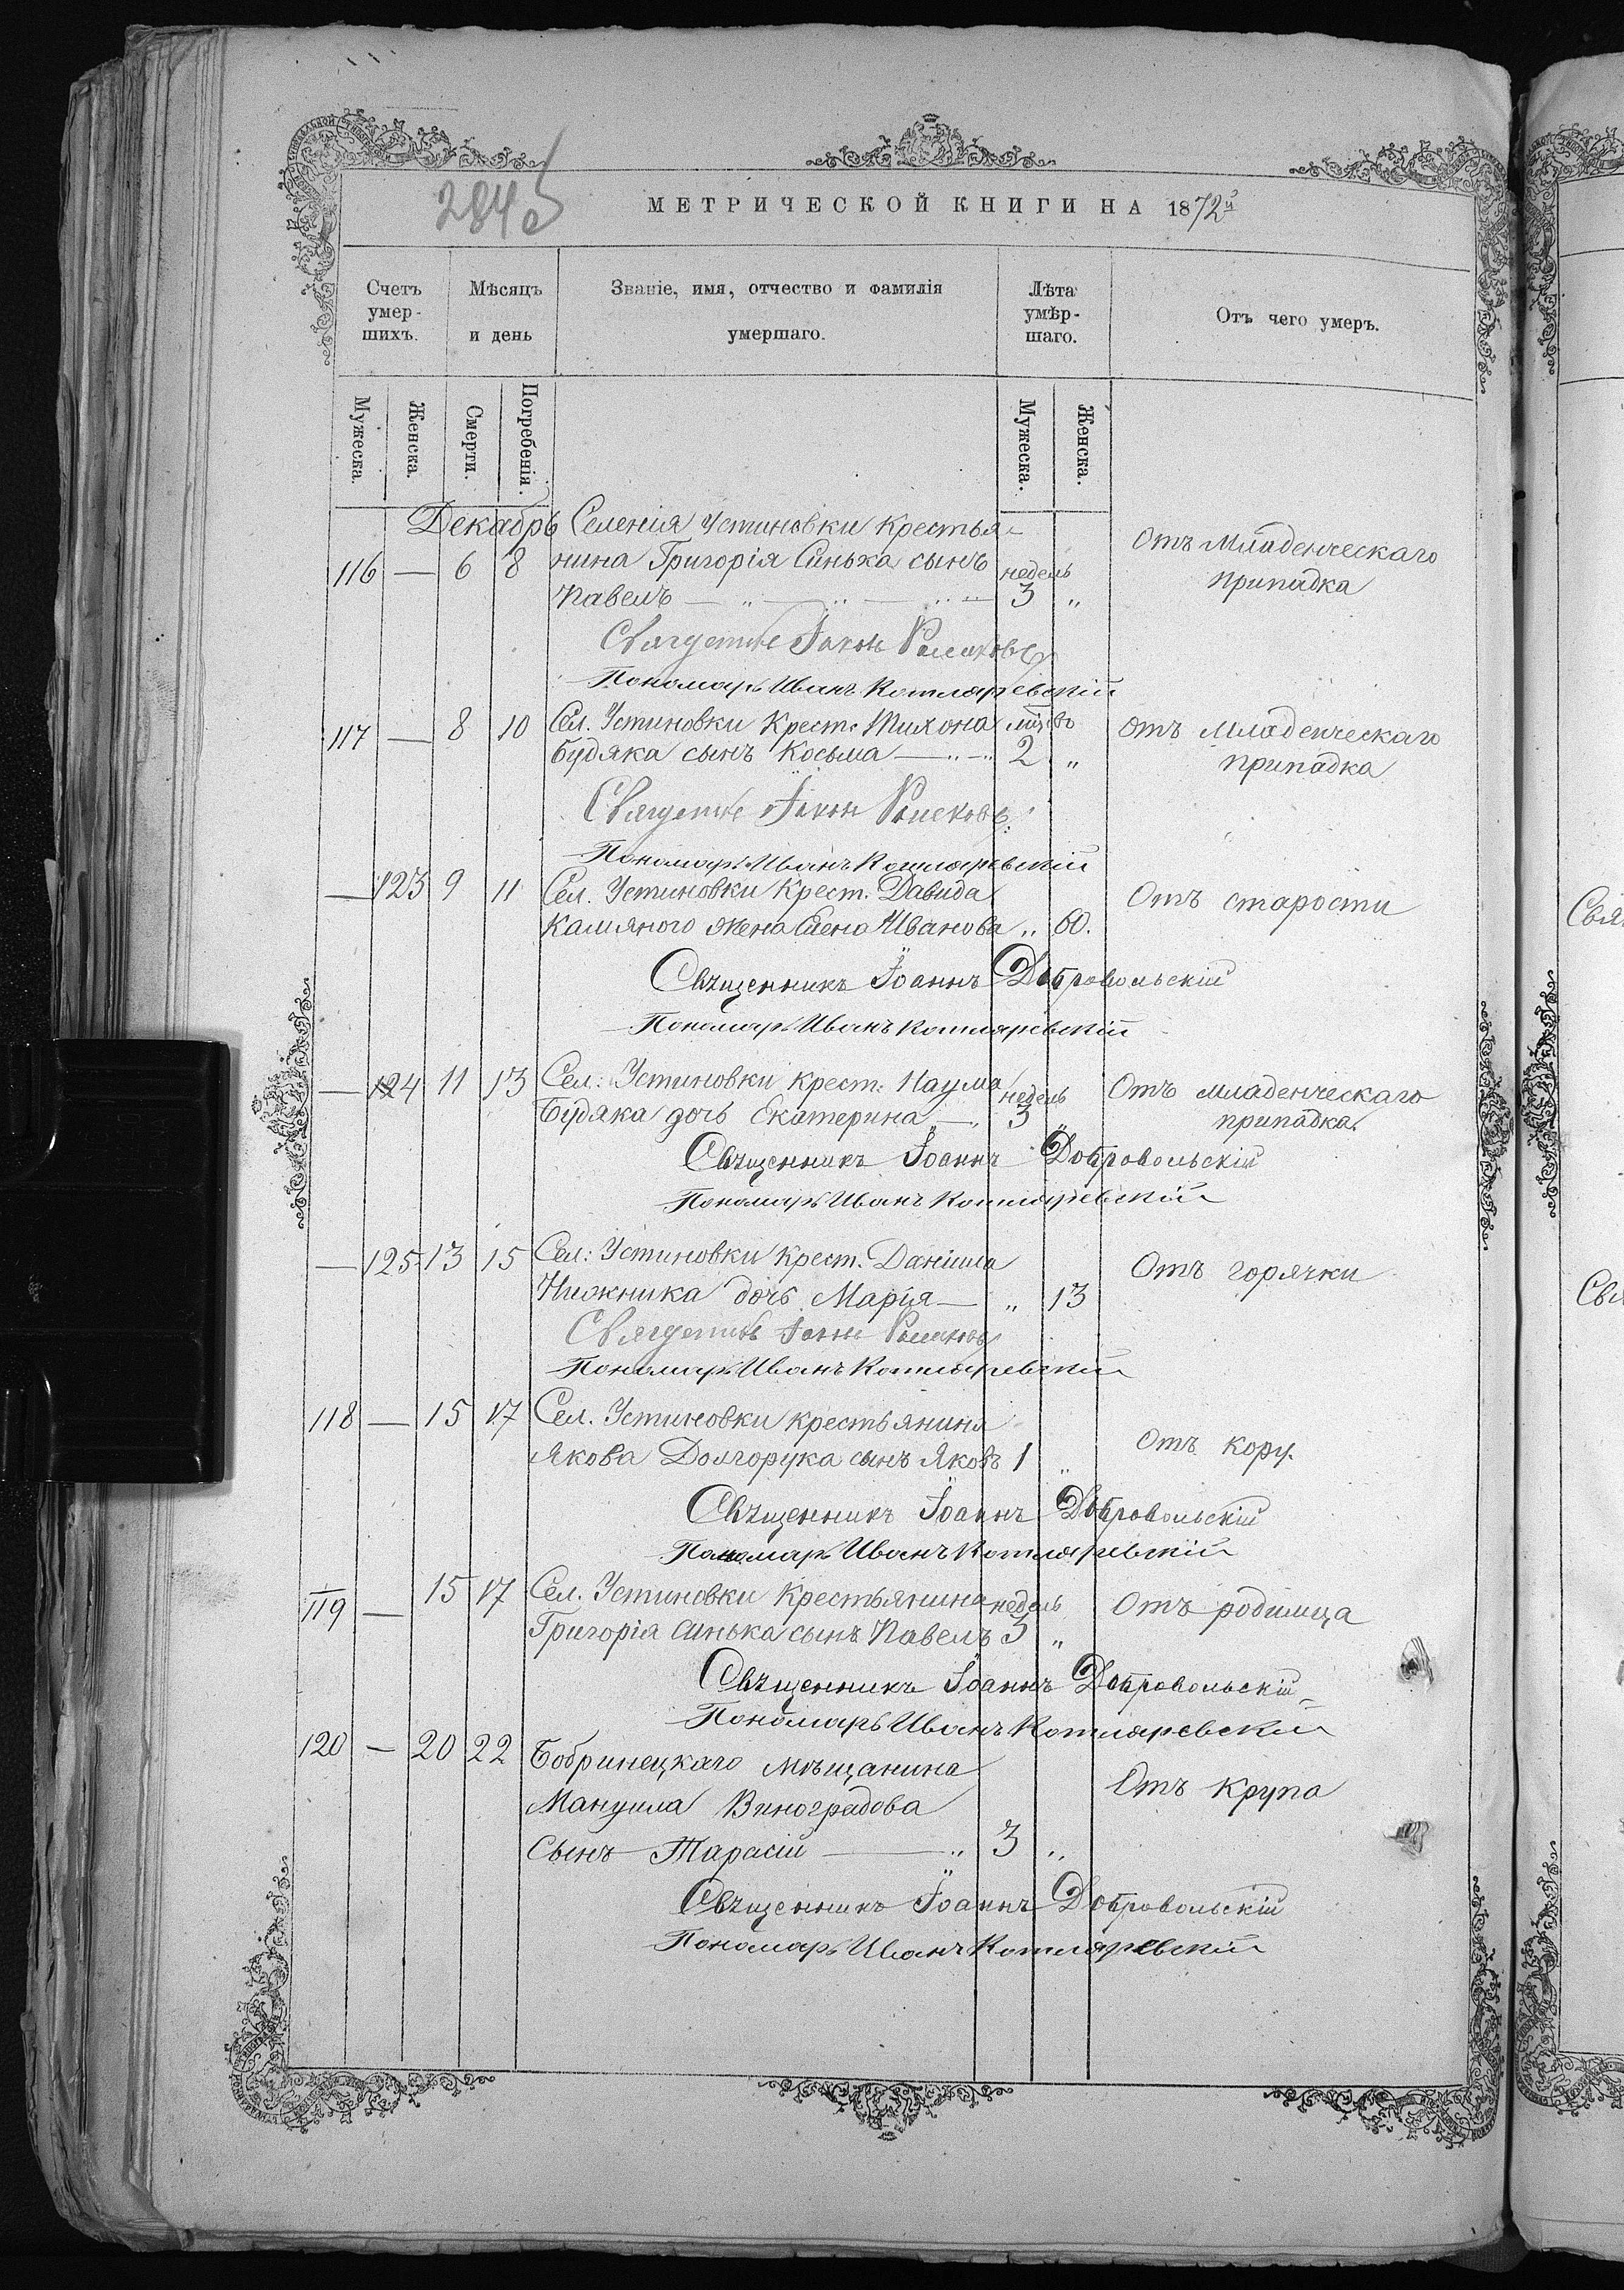 284
МЕТРИЧЕСКОЙ КНИГИ НА 1872й
Счетъ умер-шихъ.
Мѣсяцъ и день
Званіе, имя, отчество и фамилія умершаго.
Лѣта умѣр-шаго.
Отъ чего умеръ.
Мужеска. Женска. Смерти. Погребенія. Мужеска. Женска.
Декабрь Селенія Устиновки крестья-
116 — 6 8 нина Григорія Синька сынъ недель Отъ младенческаго
Павелъ — „ — „ — „ 3 „ припадка
Іоаннъ
Пономарь Иванъ Котляревскій
117 — 8 10 Сел. Устиновки Крест. Тихона мцѣвъ Отъ младенческаго
Будяка сынъ Косьма — „ 2 „ припадка
Іоаннъ
Пономарь Иванъ Котляревскій
— 123 9 11 Сел. Устиновки Крест. Давида Отъ старости
жена Елена Иванова „ 60.
Священникъ Іоаннъ Добровольскій
Пономарь Иванъ Котляревскій
— 124 11 13 Сел: Устиновки крест: Наума недель Отъ младенческаго
Будяка дочь Екатерина — „ 3 „ припадка.
Священникъ Іоаннъ Добровольскій
Пономарь Иванъ Котляревскій
— 125 13 15 Сел: Устиновки крест. Даніила Отъ горячки
Нижника дочь Марія — „ 13
Іоаннъ
Пономарь Иванъ Котляревскій
118 — 15 17 Сел. Устиновки крестьянина Отъ кору.
Якова Долгорука сынъ Яковъ 1 „
Священникъ Іоаннъ Добровольскій
Пономарь Иванъ Котляревскій
119 — 15 17 Сел. Устиновки Крестьянина недель Отъ родимца
Григорія Синька сынъ Павелъ 3 „
Священникъ Іоаннъ Добровольскій
Пономарь Иванъ Котляревскій
120 — 20 22 Бобринецкаго мѣщанина Отъ крупа
Мануила Виноградова
Сынъ Тарасій — „ 3 „
Священникъ Іоаннъ Добровольскій
Пономарь Иванъ Котляревскій